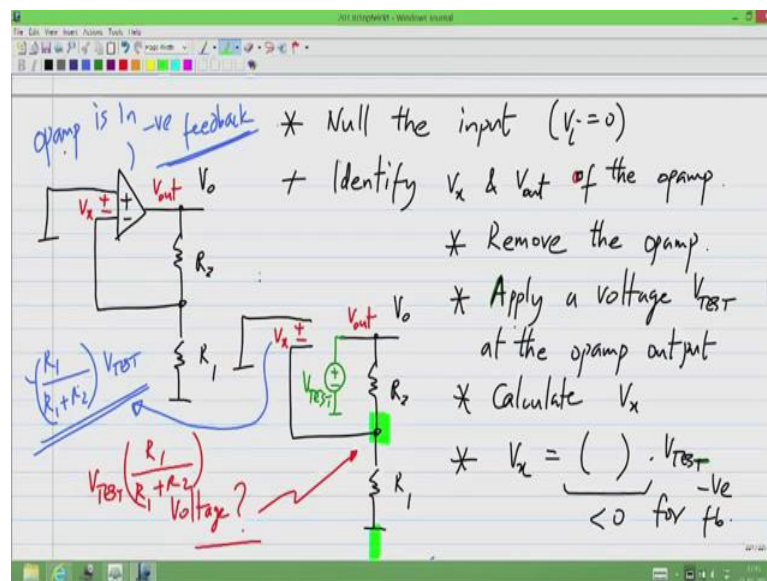 File Edit View Insert Actions Tools Help
opamp is in -ve feedback
* Null the input (Vi = 0)
+ Identify Vx & Vout of the opamp.
* Remove the opamp.
* Apply a voltage VTEST
at the opamp output
* Calculate Vx
* Vx = ( ) . VTEST
< 0 for -ve fb.
Vx + -
+ -
Vout Vo
R2
R1
Vx + -
Vout Vo
VTEST + -
R2
R1
-(R1 / (R1 + R2)) VTEST
VTEST (R1 / (R1 + R2))
Voltage?